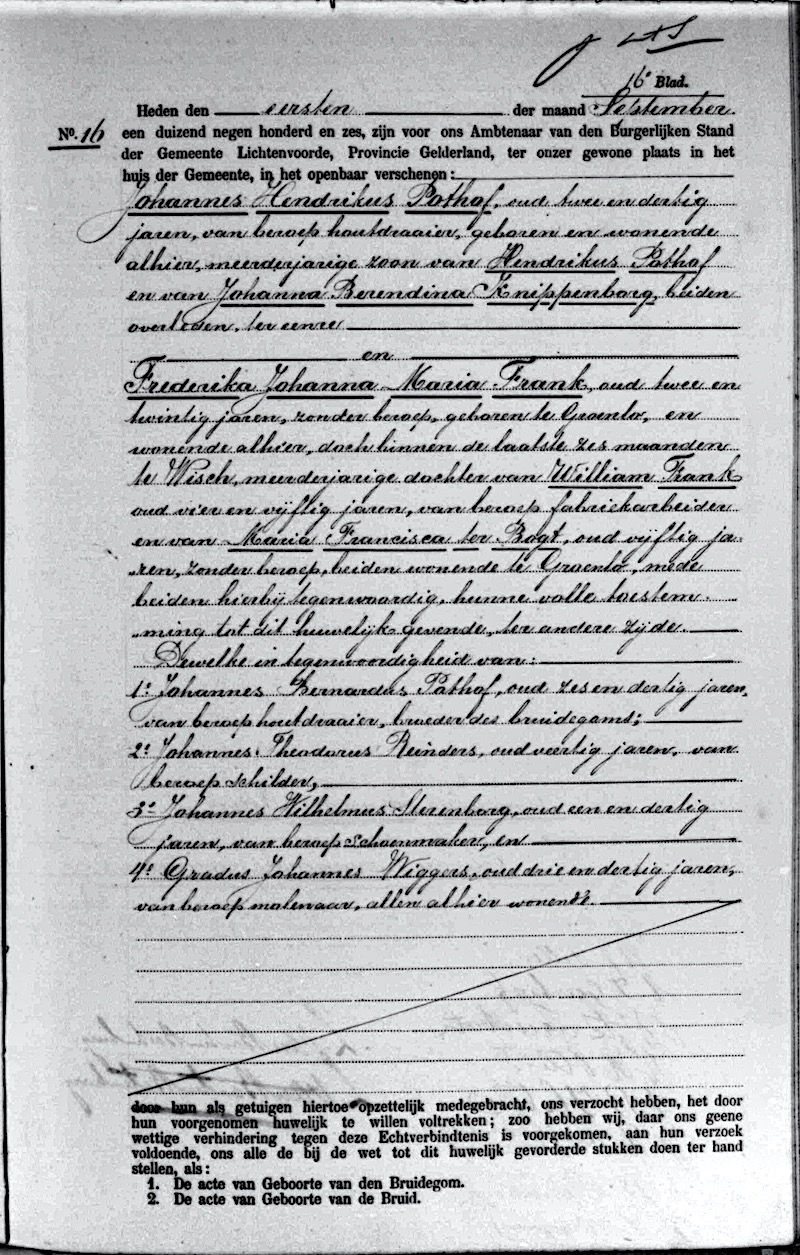 16e Blad.
Heden den eersten der maand September
No. 16 een duizend negen honderd en zes, zijn voor ons Ambtenaar van den Burgerlijken Stand
der Gemeente Lichtenvoorde, Provincie Gelderland, ter onzer gewone plaats in het
huis der Gemeente, in het openbaar verschenen:
Johannes Hendrikus Pothof, oud twee en dertig
jaren, van beroep houtdraaier, geboren en wonende
alhier, meerderjarige zoon van Hendrikus Pothof
en van Johanna Berendina Knippenborg, beiden
overleden, ter eenre
en
Frederika Johanna Maria Frank, oud twee en
twintig jaren, zonder beroep, geboren te Groenlo, en
wonende alhier, doch binnen de laatste zes maanden
te Wisch, meerderjarige dochter van William Frank
oud vier en vijftig jaren, van beroep fabriekarbeider
en van Maria Francisca ter Bogt, oud vijftig ja-
ren, zonder beroep, beiden wonende te Groenlo, mede
beiden hierbij tegenwoordig, hunne volle toestem-
ming tot dit huwelijk gevende, ter andere zijde.
Dewelke in tegenwoordigheid van:
1e Johannes Bernardus Pothof, oud zes en dertig jaren,
van beroep houtdraaier, broeder des bruidegoms;
2e Johannes Theodorus Reinders, oud veertig jaren, van
beroep schilder,
3e Johannes Wilhelmus Sterenborg, oud een en dertig
jaren, van beroep schoenmaker, en
4e Gradus Johannes Wiggers, oud drie en dertig jaren,
van beroep molenaar, allen alhier wonende.
door hun als getuigen hiertoe opzettelijk medegebracht, ons verzocht hebben, het door
hun voorgenomen huwelijk te willen voltrekken; zoo hebben wij, daar ons geene
wettige verhindering tegen deze Echtverbindtenis is voorgekomen, aan hun verzoek
voldoende, ons alle de bij de wet tot dit huwelijk gevorderde stukken doen ter hand
stellen, als:
1. De acte van Geboorte van den Bruidegom.
2. De acte van Geboorte van de Bruid.